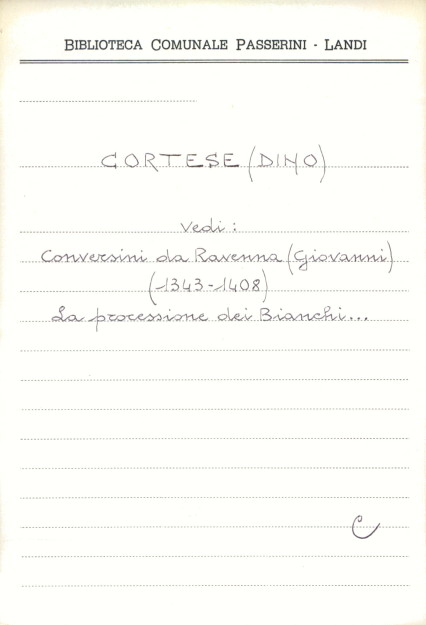 BIBLIOTECA COMUNALE PASSERINI - LANDI
CORTESE (DINO)
Vedi:
Conversini da Ravenna (Giovanni)
(1343-1408)
La processione dei Bianchi...
C